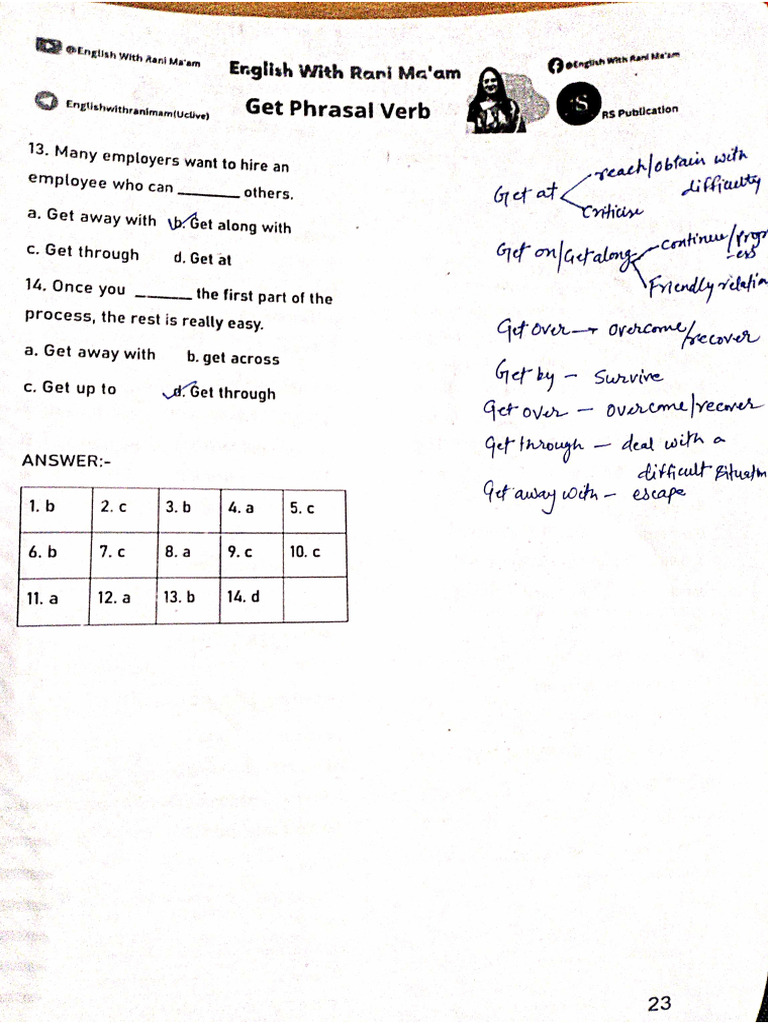 @English With Rani Ma'am
English With Rani Ma'am
@English With Rani Ma'am
Englishwithranimam(Uclive)
Get Phrasal Verb
RS
RS Publication
13. Many employers want to hire an
employee who can ________ others.
a. Get away with b. Get along with
c. Get through d. Get at
14. Once you ______ the first part of the
process, the rest is really easy.
a. Get away with b. get across
c. Get up to d. Get through
ANSWER:-
1. b 2. c 3. b 4. a 5. c
6. b 7. c 8. a 9. c 10. c
11. a 12. a 13. b 14. d
Get at reach/obtain with
difficulty
Criticise
Get on/Get along continue/progr
-ess
Friendly relation
Get over → overcome/recover
Get by – Survive
Get over – overcome/recover
Get through – deal with a
difficult
Get away with – escape
23